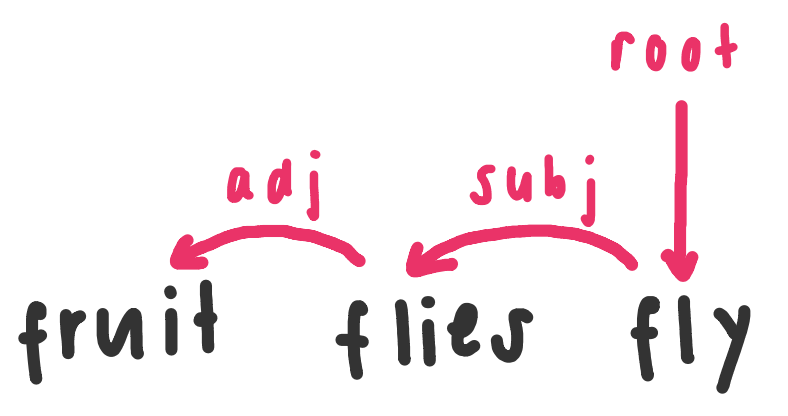 root
adj subj
fruit flies fly